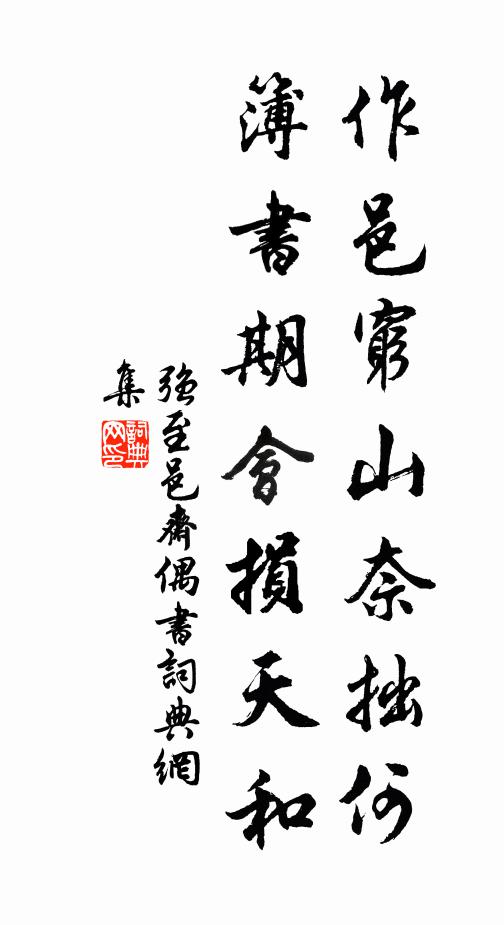 作邑窮山奈拙何
簿書期會損天和
强至邑齋偶書詞典網
集
詞典
网印